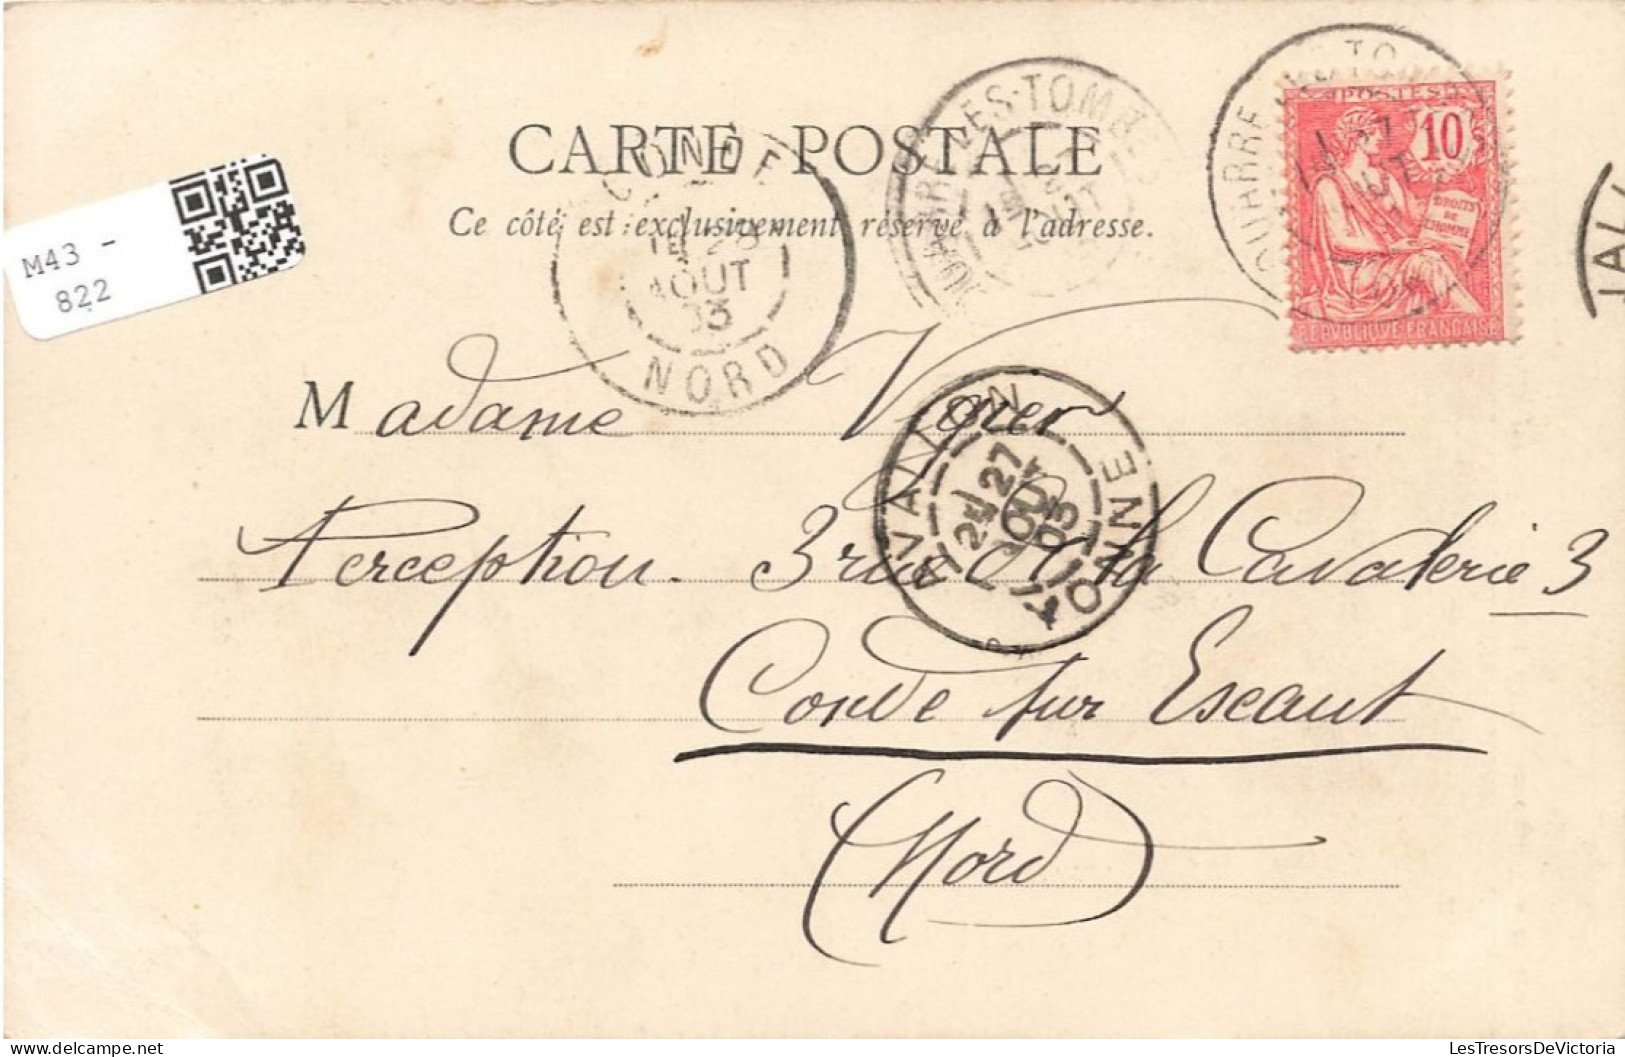 M43 -
822
CARTE POSTALE
Ce côté est exclusivement réservé à l'adresse.
CONDE
1E 28
AOUT
03
NORD
LES-TOMBES
QUARRE
27
POSTES
10
DROITS
DE
L'HOMME
REPVBLIQVE FRANÇAISE
Madame
AVALLON
27
AOUT
03
YONNE
Perception. 3 rue de la Cavalerie 3
Conde sur Escaut
(Nord)
LesTresorsDeVictoria